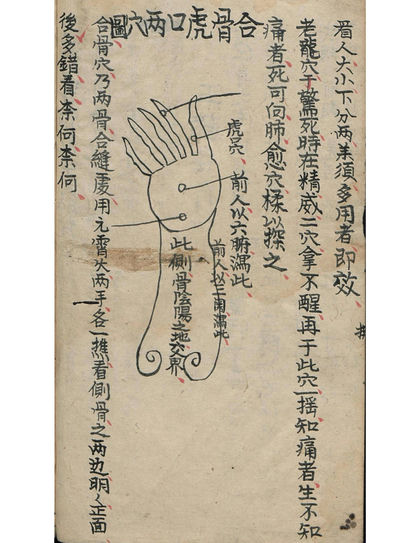 看人大小下分两着須多用者即效
老龍穴于驚死時在精威二穴拿不醒再于此穴一揺知痛者生不知
痛者死可向肺俞穴揉以探之
合骨虎口两穴圖
虎口
前人以六腑瀉此
前人以三関瀉此
此側骨陰陽之地交界
合骨穴乃两骨合縫處用元霄火两手各一燋看側骨之两边明〻正面
後多錯看柰何柰何